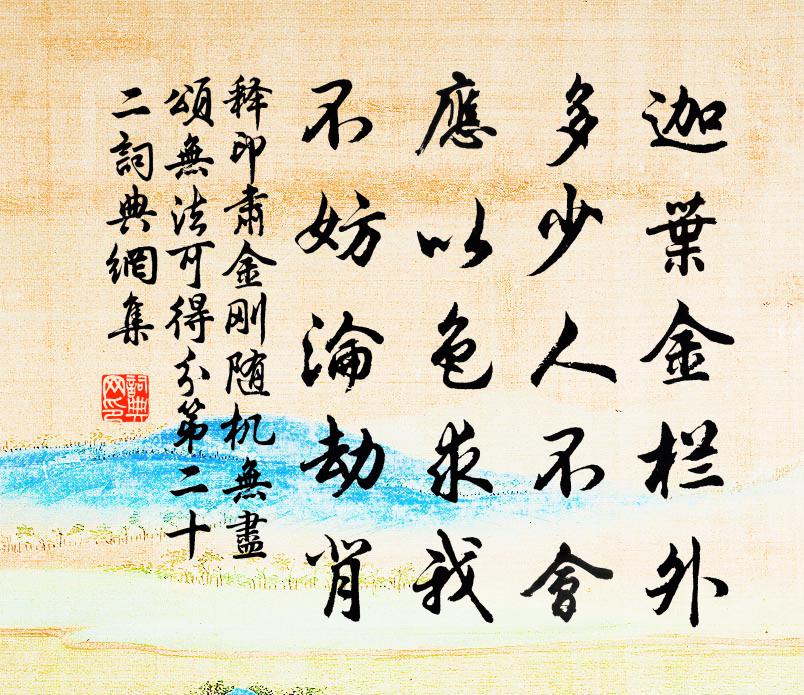 迦葉金栏外
多少人不會
應以色求我
不妨淪劫背
释印肃金刚随机無盡
頌無法可得分第二十
二詞典網集
詞典网印